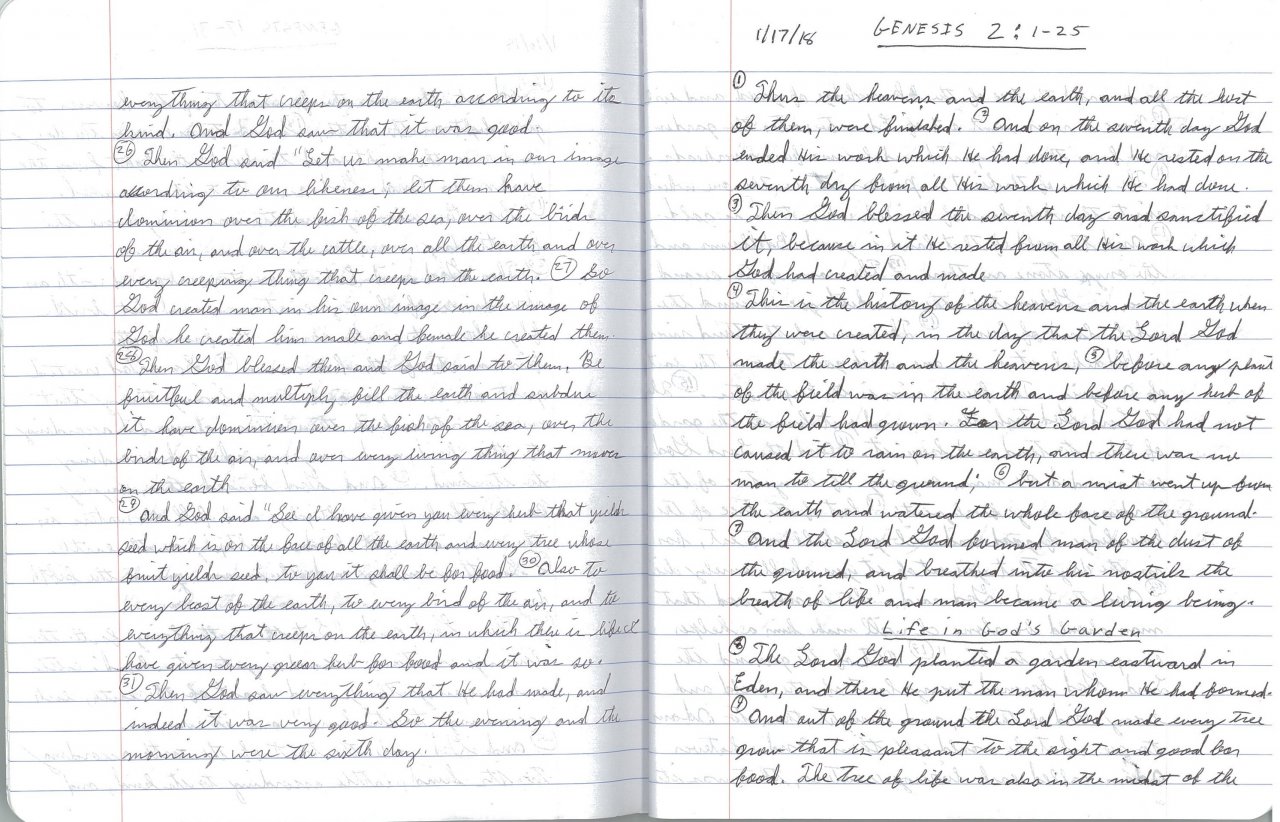 everything that creeps on the earth according to its
kind. And God saw that it was good.
(26) Then God said "Let us make man in our image
according to our likeness; let them have
dominion over the fish of the sea, over the birds
of the air, and over the cattle, over all the earth and over
every creeping thing that creeps on the earth. (27) So
God created man in his own image in the image of
God he created him male and female he created them.
(28) Then God blessed them and God said to them, Be
fruitful and multiply fill the earth and subdue
it have dominion over the fish of the sea, over the
birds of the air, and over every living thing that moves
on the earth
(29) And God said "See I have given you every herb that yields
seed which is on the face of all the earth and every tree whose
fruit yields seed, to you it shall be for food. (30) Also to
every beast of the earth, to every bird of the air, and to
everything that creeps on the earth, in which there is life I
have given every green herb for food and it was so.
(31) Then God saw everything that He had made, and
indeed it was very good. So the evening and the
morning were the sixth day.
1/17/18 GENESIS 2:1-25
(1) Thus the heavens and the earth, and all the host
of them, were finished. (2) And on the seventh day God
ended His work which He had done, and He rested on the
seventh day from all His work which He had done.
(3) Then God blessed the seventh day and sanctified
it, because in it He rested from all His work which
God had created and made
(4) This is the history of the heavens and the earth when
they were created, in the day that the Lord God
made the earth and the heavens, (5) before any plant
of the field was in the earth and before any herb of
the field had grown. For the Lord God had not
caused it to rain on the earth, and there was no
man to till the ground; (6) but a mist went up from
the earth and watered the whole face of the ground.
(7) And the Lord God formed man of the dust of
the ground, and breathed into his nostrils the
breath of life and man became a living being.
Life in God's Garden
(8) The Lord God planted a garden eastward in
Eden, and there He put the man whom He had formed.
(9) And out of the ground the Lord God made every tree
grow that is pleasant to the sight and good for
food. The tree of life was also in the midst of the